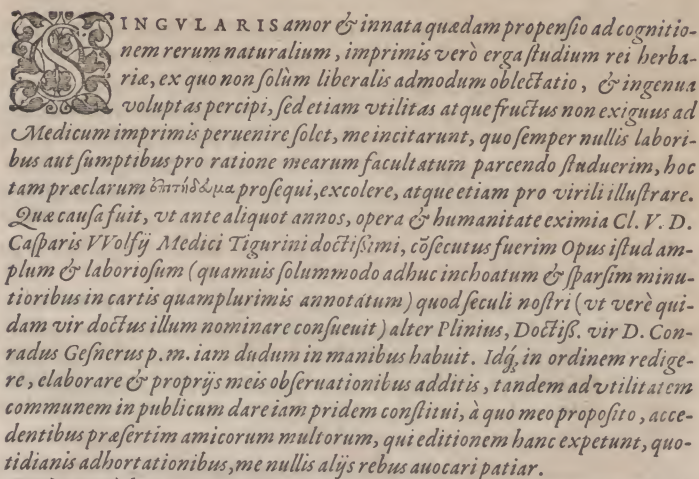 SINGVLARIS amor & innata quædam propensio ad cognitio-
nem rerum naturalium, imprimis verò erga studium rei herba-
riæ, ex quo non solùm liberalis admodum oblectatio, & ingenua
voluptas percipi, sed etiam vtilitas atque fructus non exiguus ad
Medicum imprimis peruenire solet, me incitarunt, quo semper nullis labori-
bus aut sumptibus pro ratione mearum facultatum parcendo studuerim, hoc
tam præclarum ἐπιτήδωμα prosequi, excolere, atque etiam pro virili illustrare.
Quæ causa fuit, vt ante aliquot annos, opera & humanitate eximia Cl. V. D.
Casparis VVolfij Medici Tigurini doctißimi, cōsecutus fuerim Opus istud am-
plum & laboriosum (quamuis solummodo adhuc inchoatum & sparsim minu-
tioribus in cartis quamplurimis annotatum) quod seculi nostri (vt verè qui-
dam vir doctus illum nominare consueuit) alter Plinius, Doctiß. vir D. Con-
radus Gesnerus p. m. iam dudum in manibus habuit. Idq́, in ordinem redige-
re, elaborare & proprijs meis obseruationibus additis, tandem ad vtilitatem
communem in publicum dare iam pridem constitui, à quo meo proposito, acce-
dentibus præsertim amicorum multorum, qui editionem hanc expetunt, quo-
tidianis adhortationibus, me nullis alijs rebus auocari patiar.